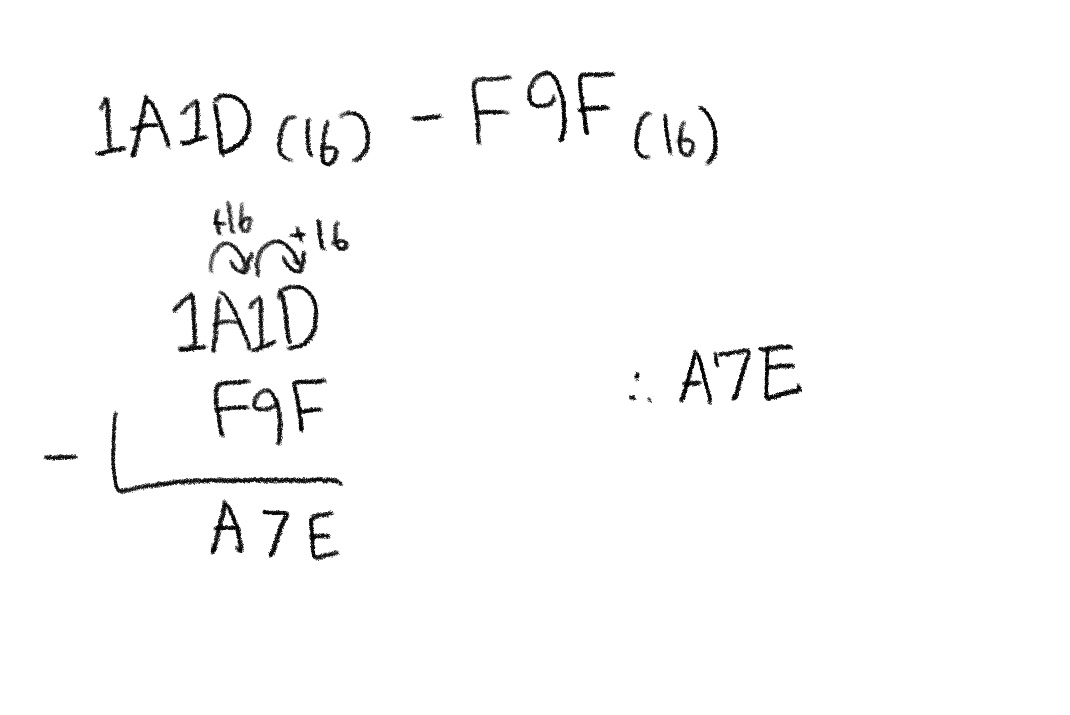 1A1D (16) - F9F (16)
+16 +16
1A1D
F9F
-
A7E
∴ A7E